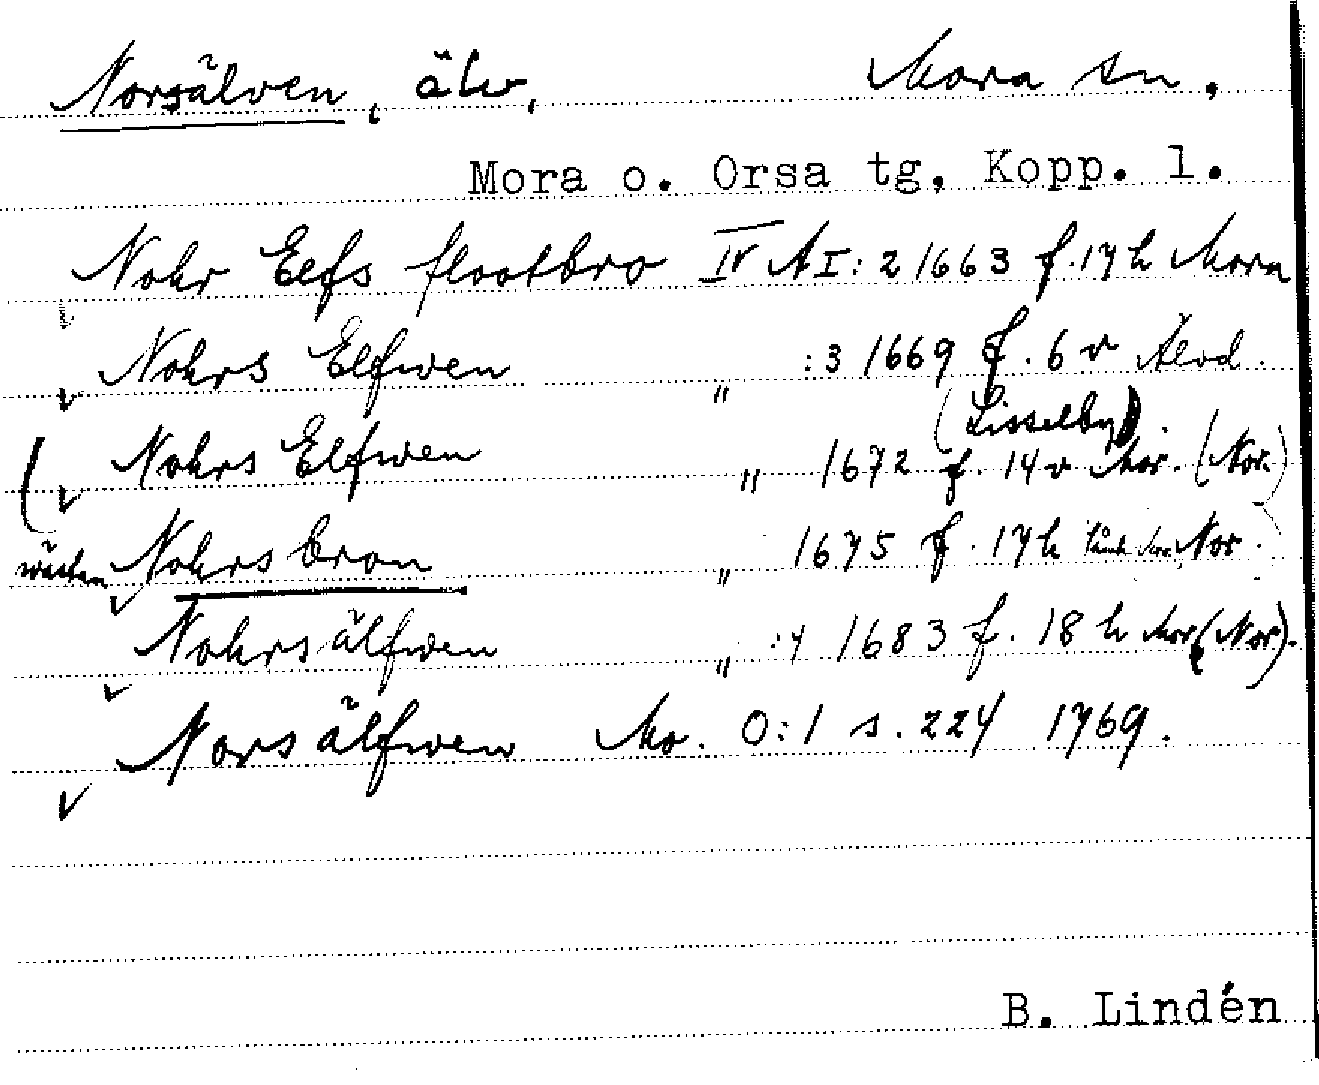 Norsälven, älv, Mora sn,
Mora o. Orsa tg, Kopp. l.
Nohr Elfs flootbro IV A I:2 1663 f. 17 h Mora
Nohrs Elfwen " :3 1669 f. 6 v Älvd.
(Lisselby).
( Nohrs Elfwen " 1672 f. 14 v Mor. (Nor.)
Nohrsbron " 1675 f. 17 h Nor.
Nohrsälfwen " :4 1683 f. 18 h Mor (Nor).
Norsälfwen Mo. O:1 s. 224 1769.
B. Lindén